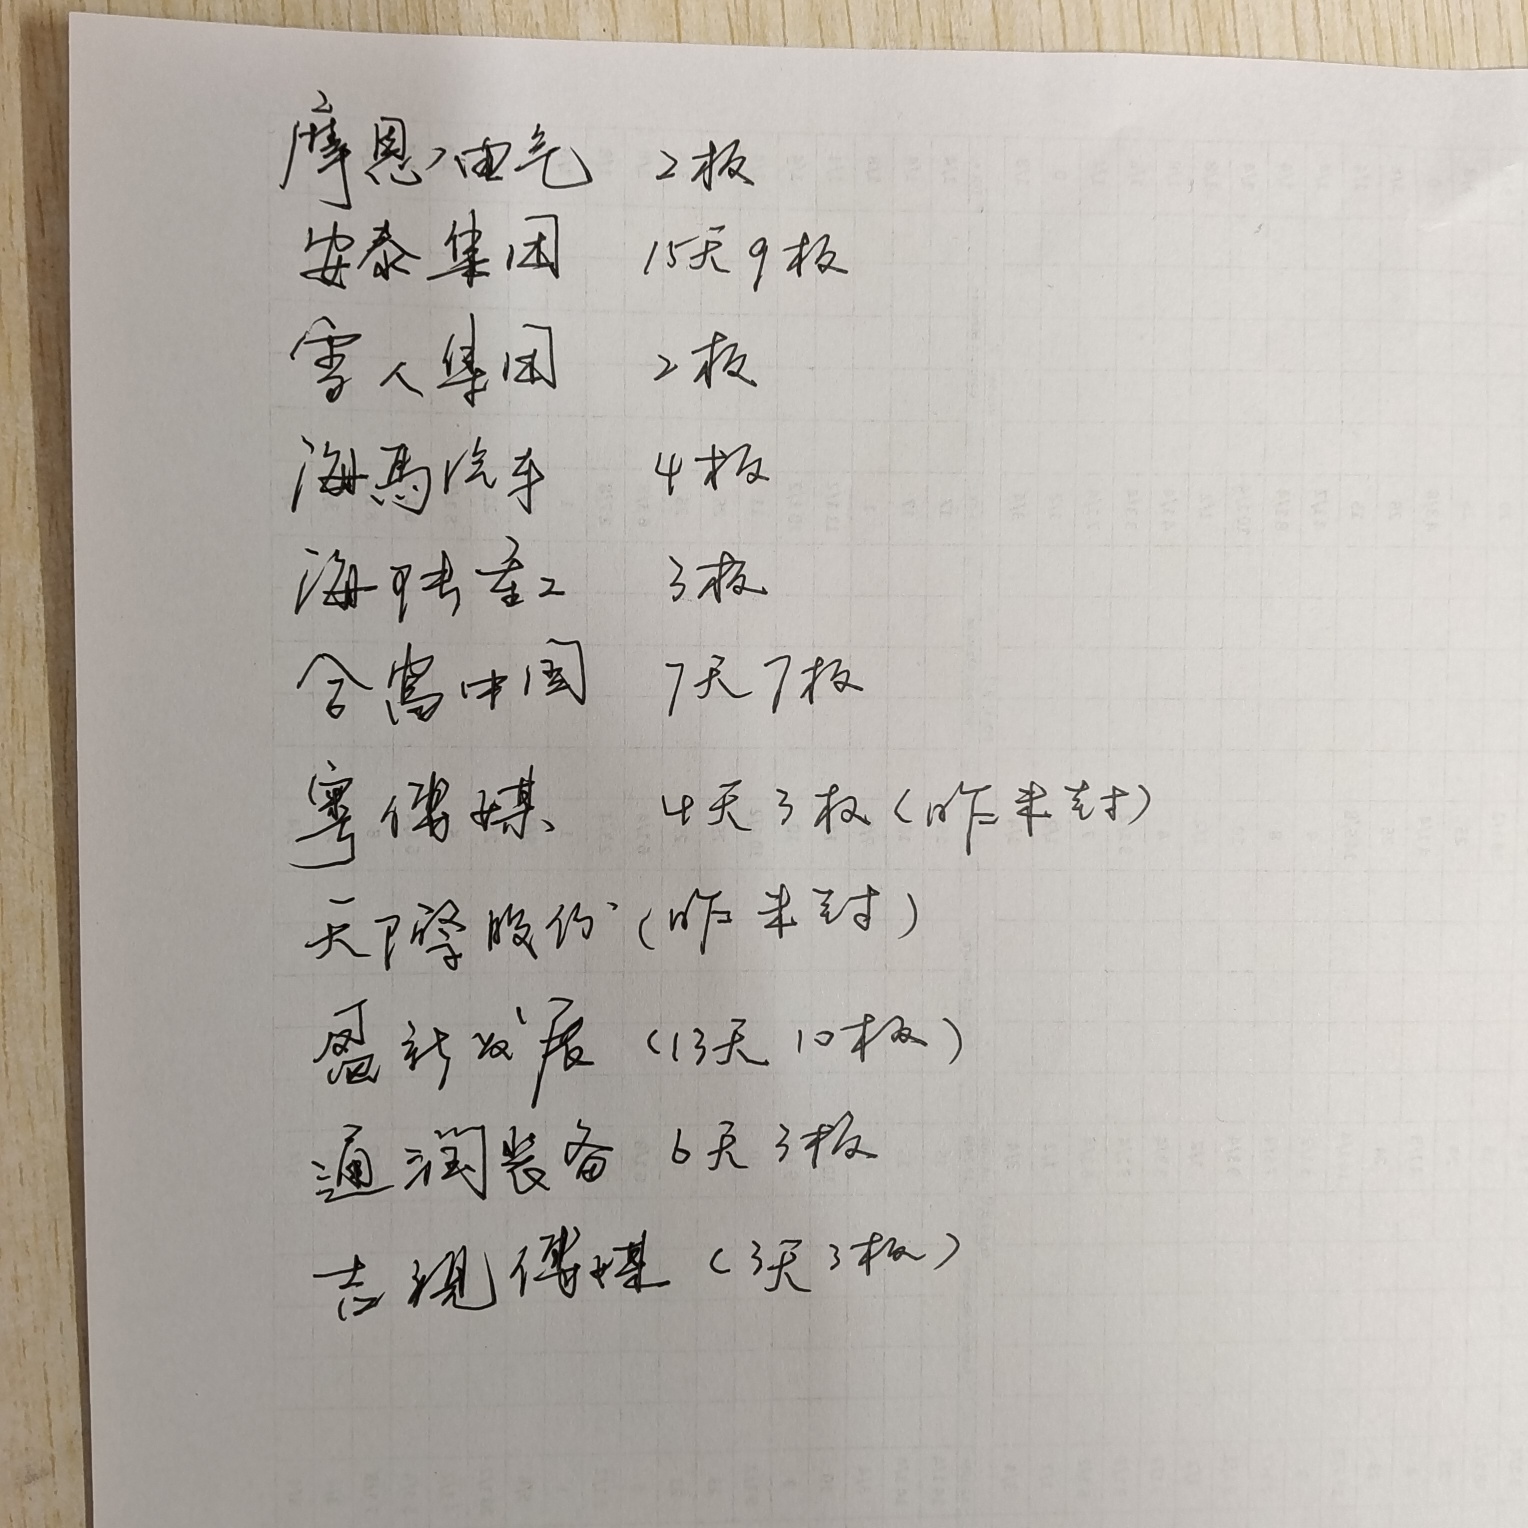 摩恩电气 2板
安泰集团 15天9板
雪人集团 2板
海马汽车 4板
海陆重工 3板
合富中国 7天7板
粤传媒 4天3板(昨未封)
天际股份(昨未封)
盈新发展(13天10板)
通润装备 6天3板
吉视传媒(3天3板)